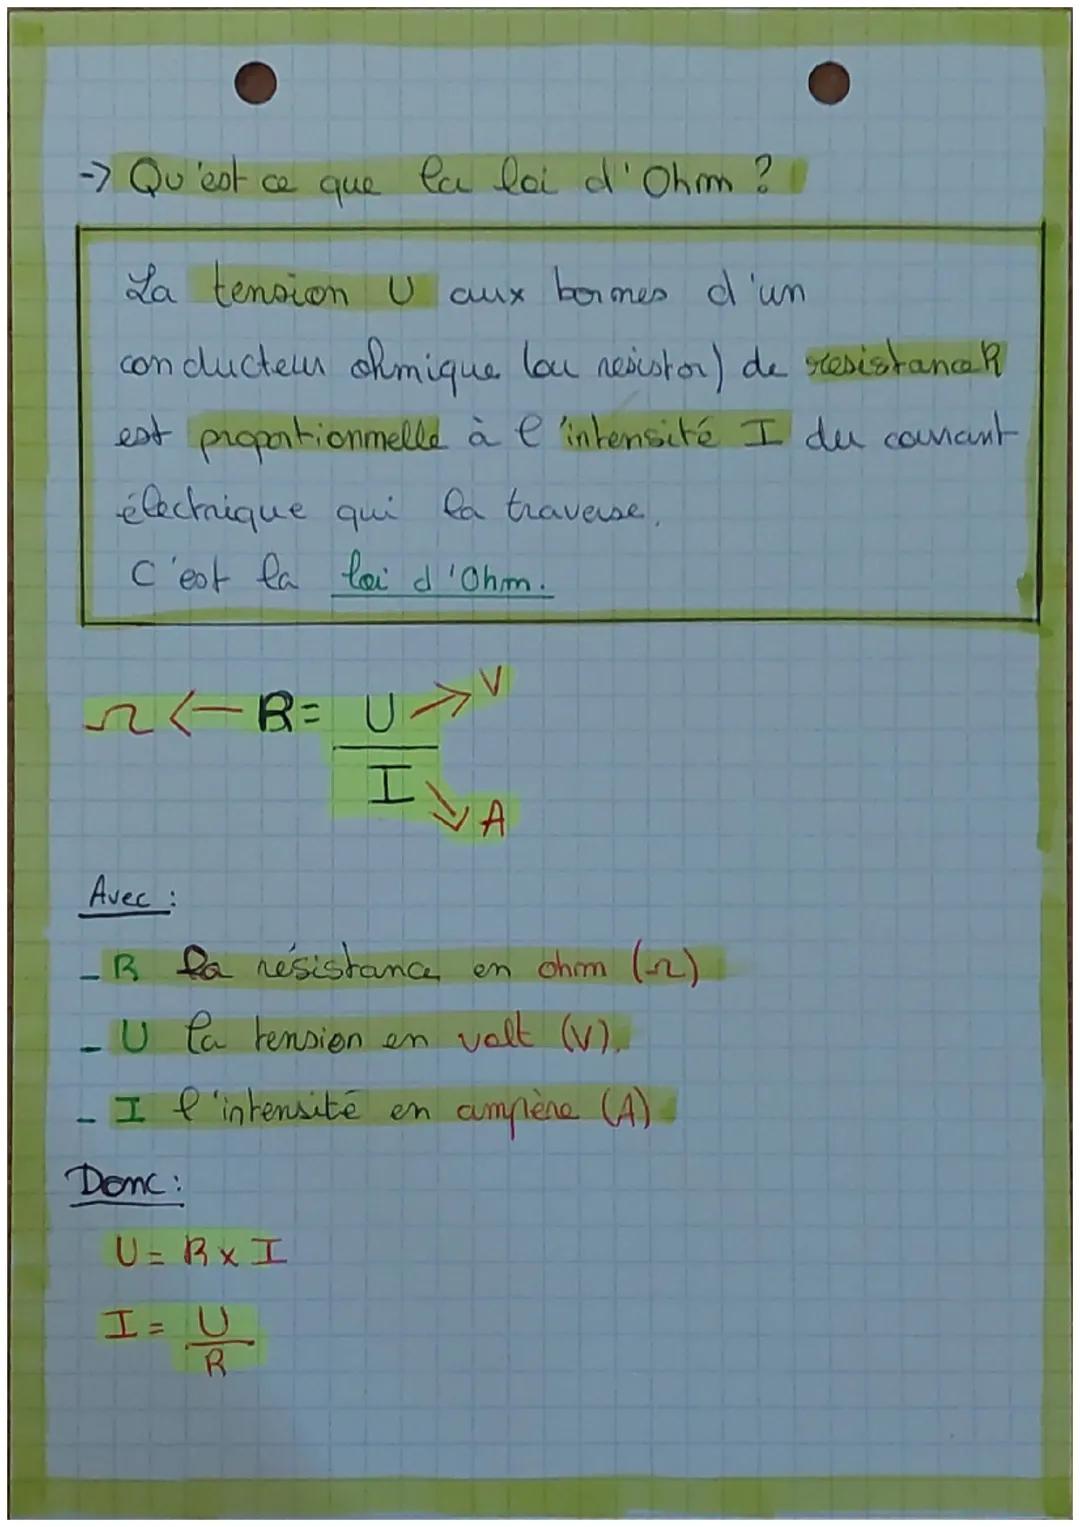 -> Qu'est ce que la loi d'Ohm ?
La tension U aux bornes d'un
conducteur ohmique (ou resistor) de resistance R
est proportionnelle à l'intensité I du courant
électrique qui la traverse.
C'est la loi d'Ohm.
Ω <- R = U -> V
I -> A
Avec :
- R la résistance en ohm (Ω)
- U la tension en volt (V).
- I l'intensité en ampère (A)
Donc :
U = R x I
I = U
R